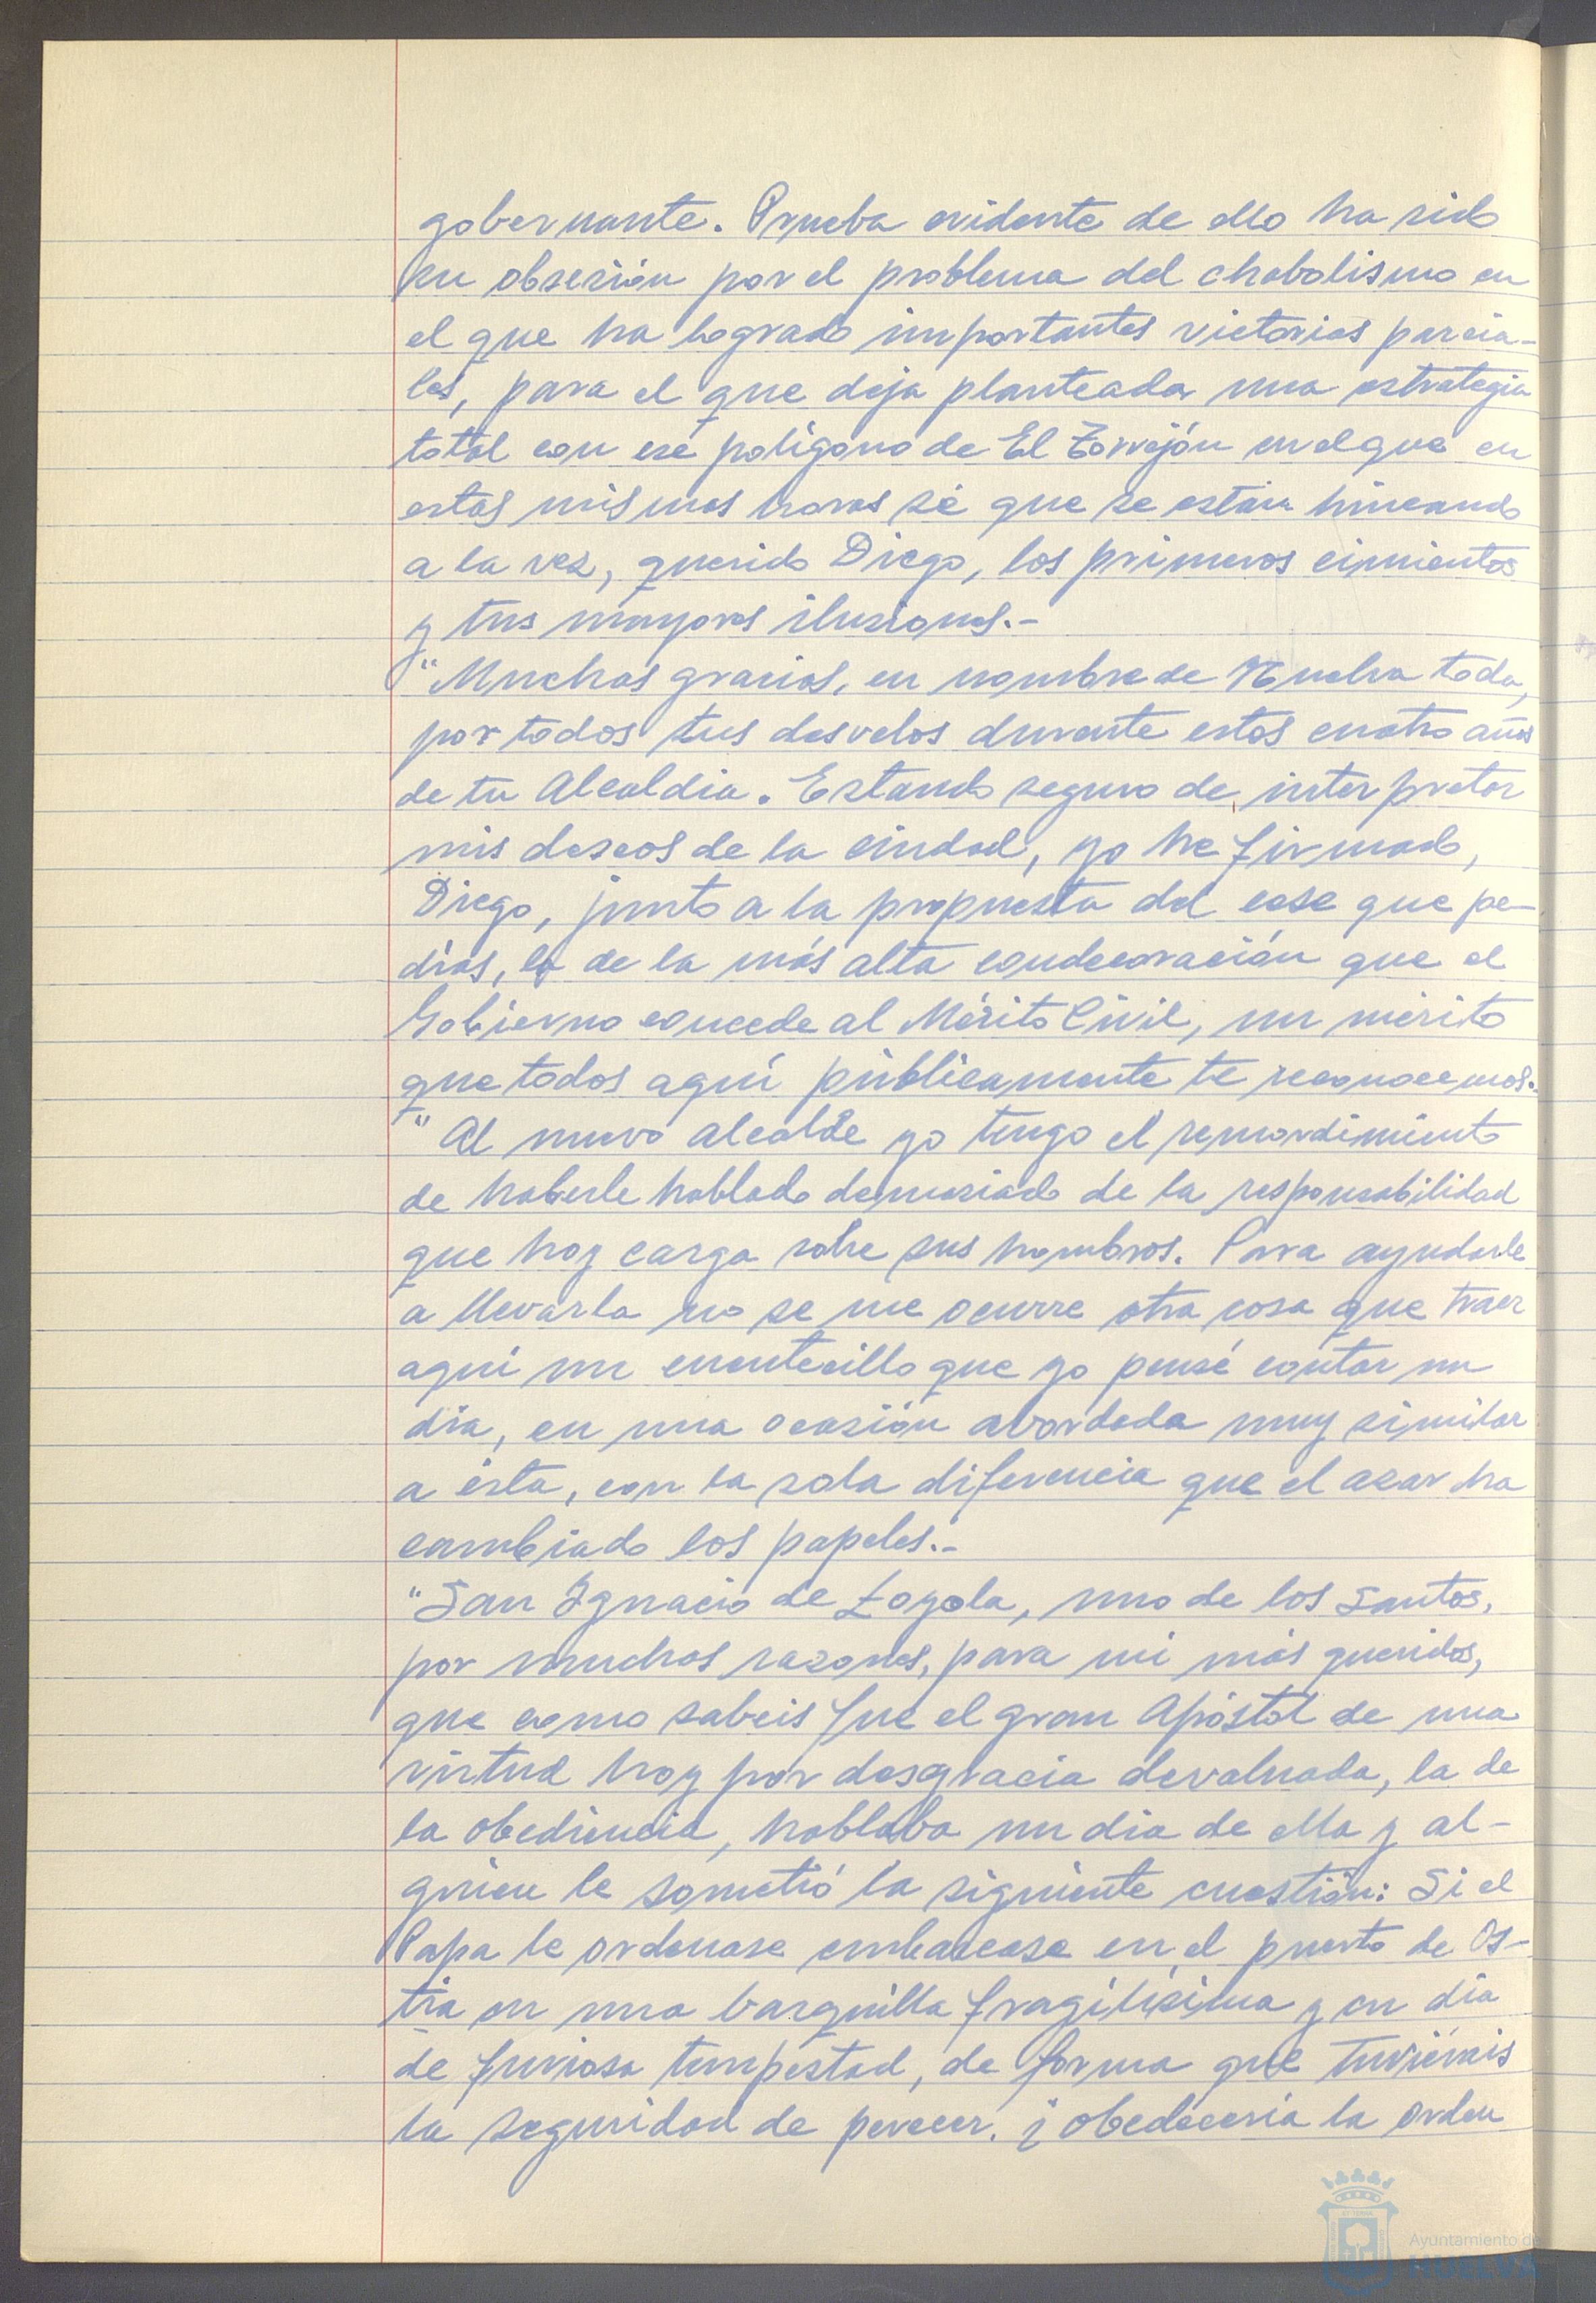 gobernante. Prueba evidente de ello ha sido
su obsesión por el problema del chabolismo en
el que ha logrado importantes victorias parcia-
les, para el que deja planteada una estrategia
total con ese polígono de El Torrejón en el que en
estas mismas horas sé que se están hincando
a la vez, querido Diego, los primeros cimientos
y tus mayores ilusiones.-
"Muchas gracias, en nombre de Huelva toda,
por todos tus desvelos durante estos cuatro años
de tu Alcaldia. Estando seguro de interpretar
mis deseos de la ciudad, yo he firmado,
Diego, junto a la propuesta del cese que pe-
dias, la de la más alta condecoración que el
Gobierno concede al Mérito Civil, un mérito
que todos aquí públicamente te reconocemos.-
"Al nuevo alcalde yo tengo el remordimiento
de haberle hablado demasiado de la responsabilidad
que hoy carga sobre sus hombros. Para ayudarle
a llevarla no se me ocurre otra cosa que traer
aquí un cuentecillo que yo pensé contar un
dia, en una ocasión abordada muy similar
a ésta, con la sola diferencia que el azar ha
cambiado los papeles.-
"San Ignacio de Loyola, uno de los Santos,
por muchas razones, para mi más queridos,
que como sabeis fue el gran Apóstol de una
virtud hoy por desgracia devaluada, la de
la obediencia, hablaba un dia de ella y al-
guien le sometió la siguiente cuestión: Si el
Papa le ordenase embarcase en el puerto de Os-
tia en una barquilla fragilísima y en dia
de furiosa tempestad, de forma que tuviérais
la seguridad de perecer. ¿obedeceria la orden
Ayuntamiento de
HUELVA